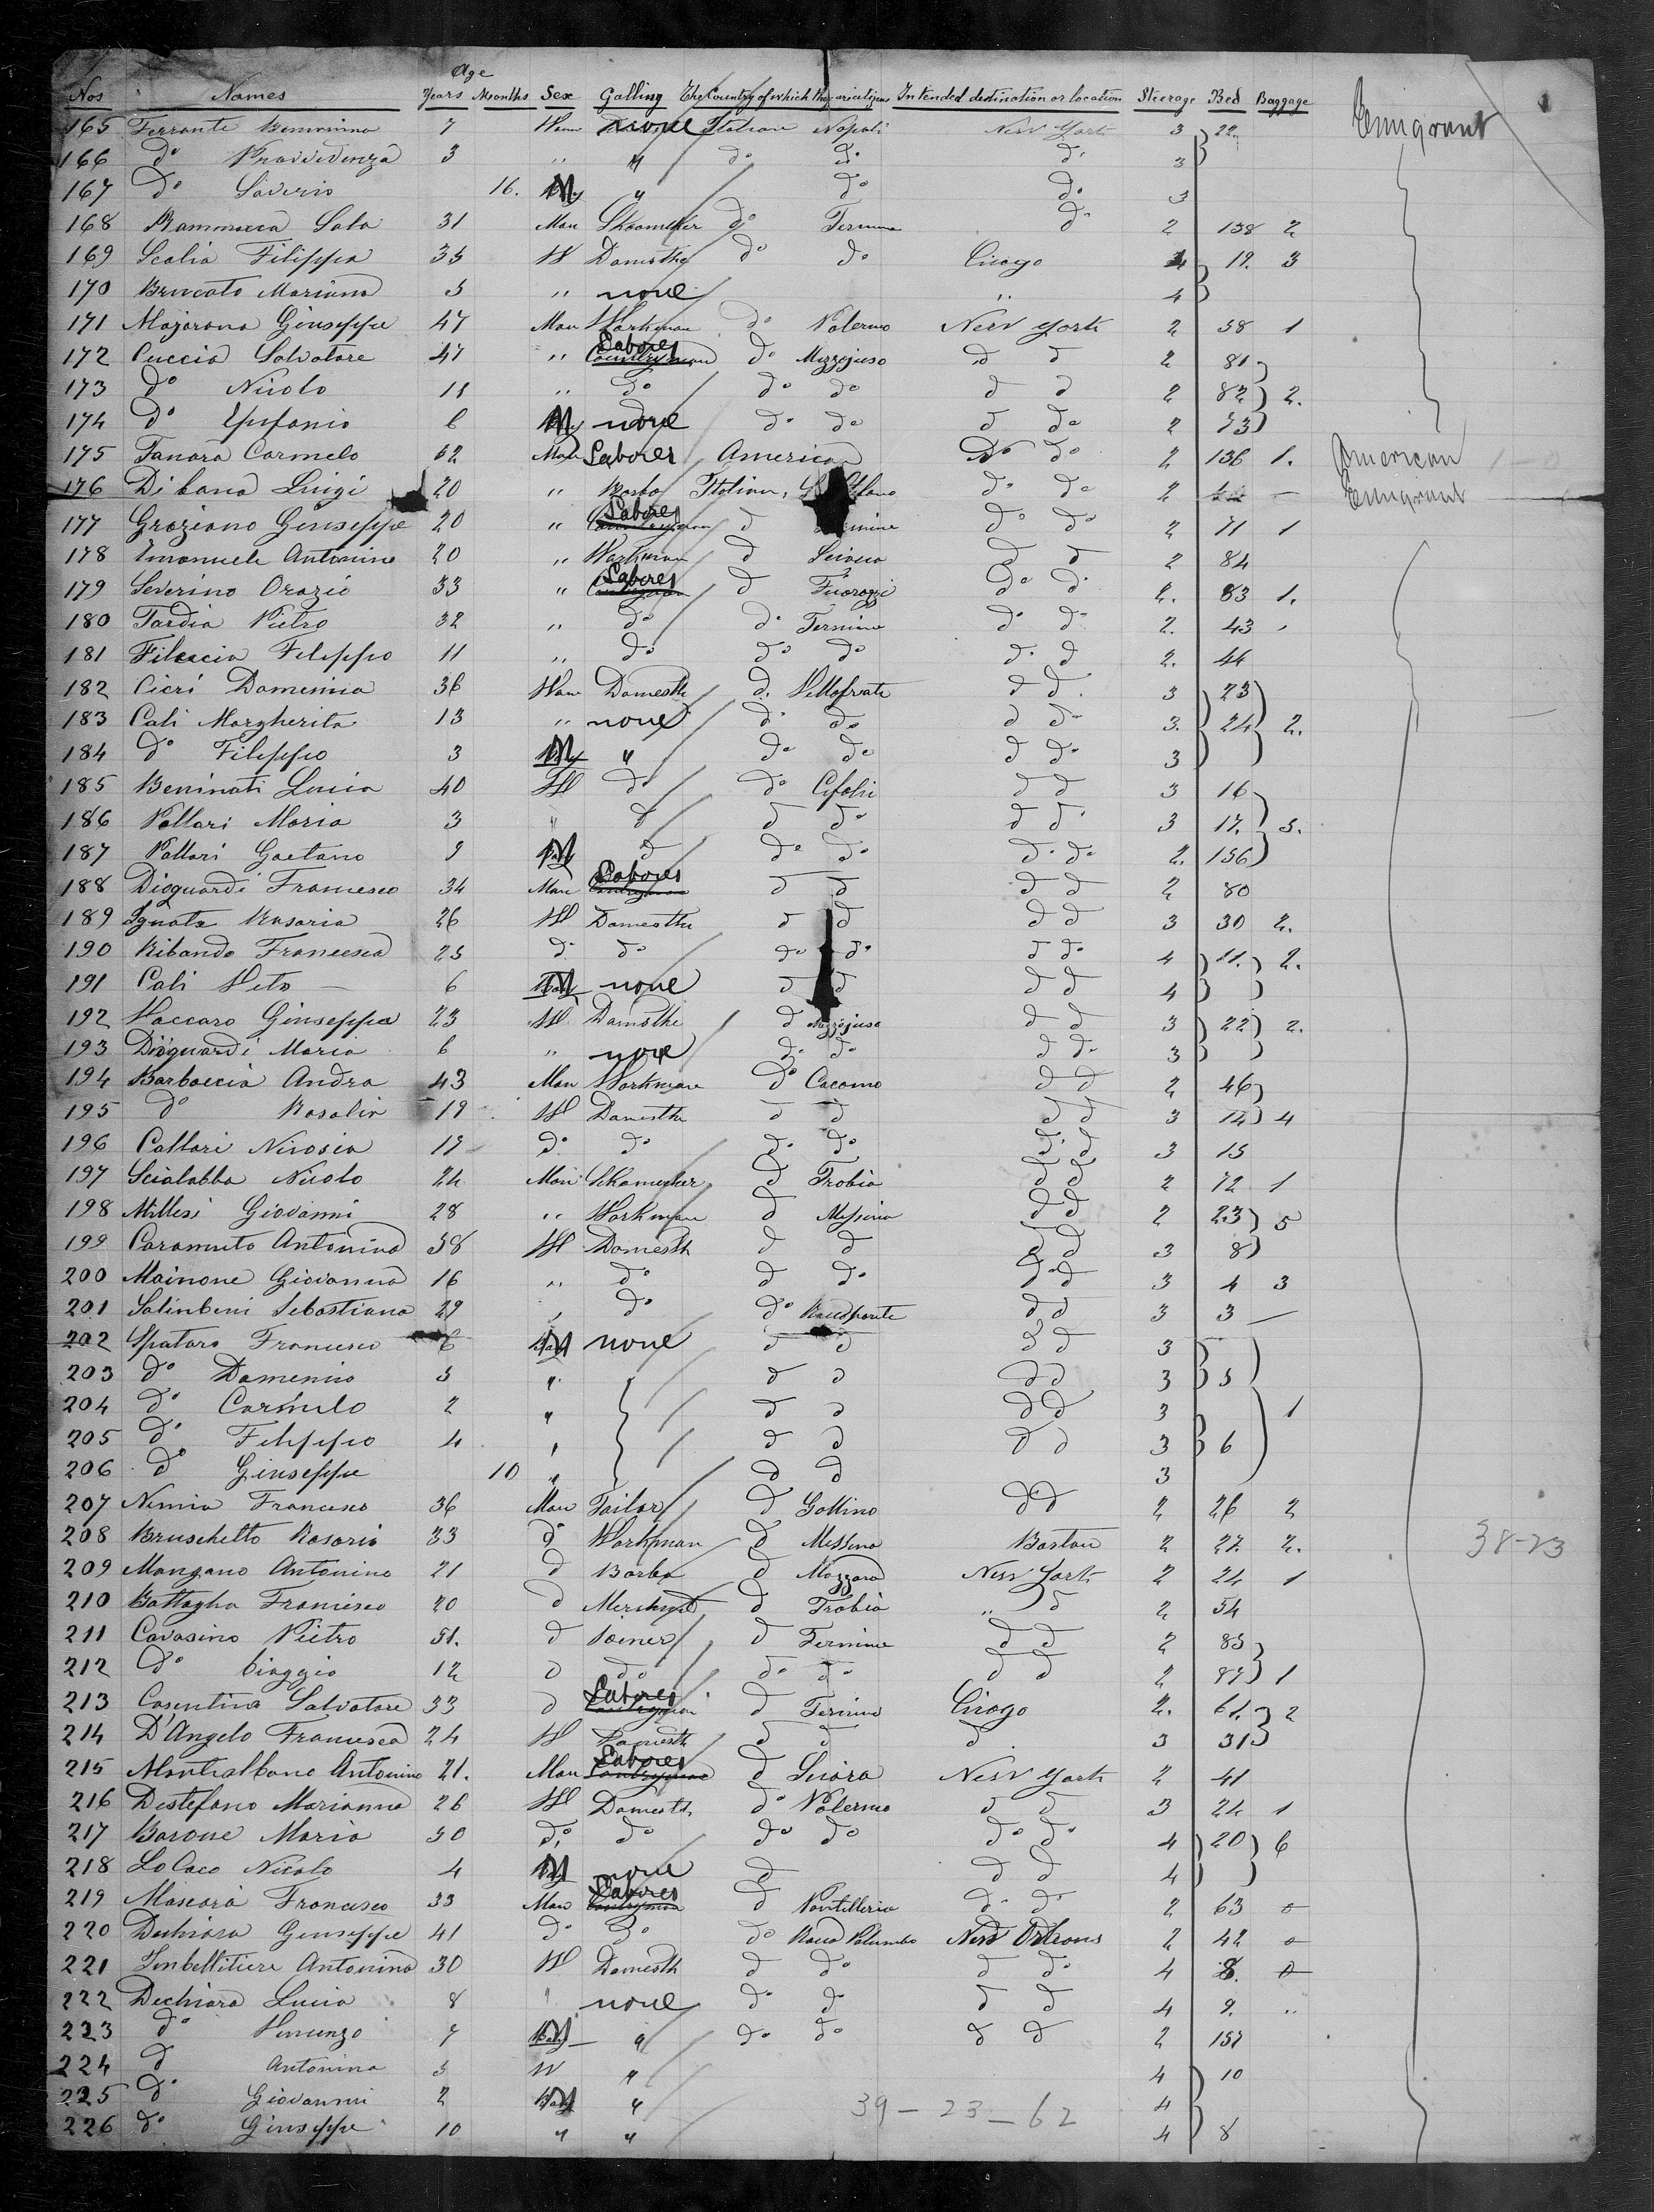 Age
Nos Names Years Months Sex Calling The Country of which they are citizens Intended destination or location Steerage Bed Baggage
165 Ferrante 7 none Italian Napoli New York 3 22. Emigrant
166 do Provvidenza 3 " " do do do 3
167 do Saverio 16. M " do do 3
168 Sala 31 Man Shoemeker do Termine do 2 138 2
169 Scalia Filippa 35 W Domesthe do do Cicago 4 19. 3
170 Brucato Mariana 5 " none " 4
171 Majorana Giuseppe 47 Man Workman do Palermo New York 2 58 1
172 Cuccia Salvatore 47 " Laborer Countryman do Mezzojuso d d 2 81
173 do Nicolo 11 " do do do d d 2 82 2.
174 do Epifanio 6 M none do do d do 2 73
175 Fanara Carmelo 52 Man Laborer American do do 2 136 1. American
176 Di Luigi 20 " Barba Italian, do do 2 — Emigrant
177 Graziano Giuseppe 20 " Laborer Countryman d do do 2 71 1
178 Emanuele Antonino 20 " Workman d Sciacca d d 2 84
179 Severino Orazio 33 " Laborer d do d. 2. 83 1.
180 Tardia Pietro 32 " do do Termine do do 2. 43
181 Filippo 11 " do do do do d 2. 44
182 Cicri Domenica 36 Domesthe d. Villafrate d d. 3 23
183 Cali Margherita 13 " none do do d do 3. 24 2.
184 do Filippo 3 M " do do d do 3
185 Beninati Lucia 40 W do do Cefalu d d 3 16
186 Pollari Maria 3 " d d do d d. 3 17. 3.
187 Pollari Gaetano 9 M d do do do do 2. 156
188 Dioguardi Francesco 34 Man Laborer d d d d 2 80
189 Ignota Rosaria 26 W Domesthe d d d d 3 30 2.
190 Ribando Francesca 25 d. do do do d do 4 11. 2.
191 Cali Vito — 6 M none d d d d 4
192 Vaccaro Giuseppa 23 W Domesthe d Mezzojuso d d 3 22 2.
193 Dioguardi Maria 6 " none do do d do 3
194 Barbaccia Andra 43 Man Workman do Cacamo d d 2 46
195 do Rosalia 19 W Domesthe d d d d 3 14 4
196 Callari Nirosia 19 do do do do d. d 3 15
197 Scialabba Nicolo 24 Man Schomecker d Trobia d d 2 72 1
198 Millesi Giovanni 28 " Workman d Messina d d 2 23 5
199 Caramuto Antonina 58 W Domesth d d d d 3 8
200 Mainone Giovanna 16 " do d do do d 3 4 3
201 Salinbeni Sebastiana 29 " do do d d 3 3 —
202 Spataro Francesco 6 M none d d d d 3
203 do Domenico 5 " d d d d 3 5
204 do Carmelo 2 " d d d d 3 1
205 do Filippo 4 " d d d d 3 6
206 do Giuseppe 10 " d d 3
207 Nimia Francesco 36 Man Tailor d Gallino d d 2 26 2
208 Bruschetto Rosario 33 do Workman d Messina Boston 2 27. 2. 38-23
209 Mangano Antonino 21 d Barba d Mazzara New York 2 24 1
210 Battaglia Francesco 20 d Merchant d Trobia " d 2 54
211 Cavasino Pietro 51. d Joiner d Termine d d 2 85
212 do Biaggio 12 d do do do d d 2 87 1
213 Cosentino Salvatore 33 d Laborer d Termine Cicago 2. 61. 2
214 D'Angelo Francesca 24 W Domesth d d d 3 31
215 Montralbano Antonino 21. Man Laborer Countryman d Sciara New York 2 41
216 Destefano Marianna 26 W Domesth do Palermo d d 3 24 1
217 Barone Maria 50 do do do do do do 4 20 6
218 Lo Caco Nicolo 4 M none d d d 4
219 Mascara Francesco 33 Man Laborer d Pantilleria do do 2 63 o
220 Dechiara Giuseppe 41 do do do Rocca Palumba New Orleans 2 42 o
221 Antonina 30 W Domesth d do d do 4 8. o
222 Dechiara Lucia 8 " none do do d d 4 9. "
223 do Vincenzo 7 M " do do d d 2 157
224 d Antonina 5 W " 4 10
225 do Giovanni 2 M " 4
226 do Giuseppe 10 " " 4 8
39 — 23 — 62